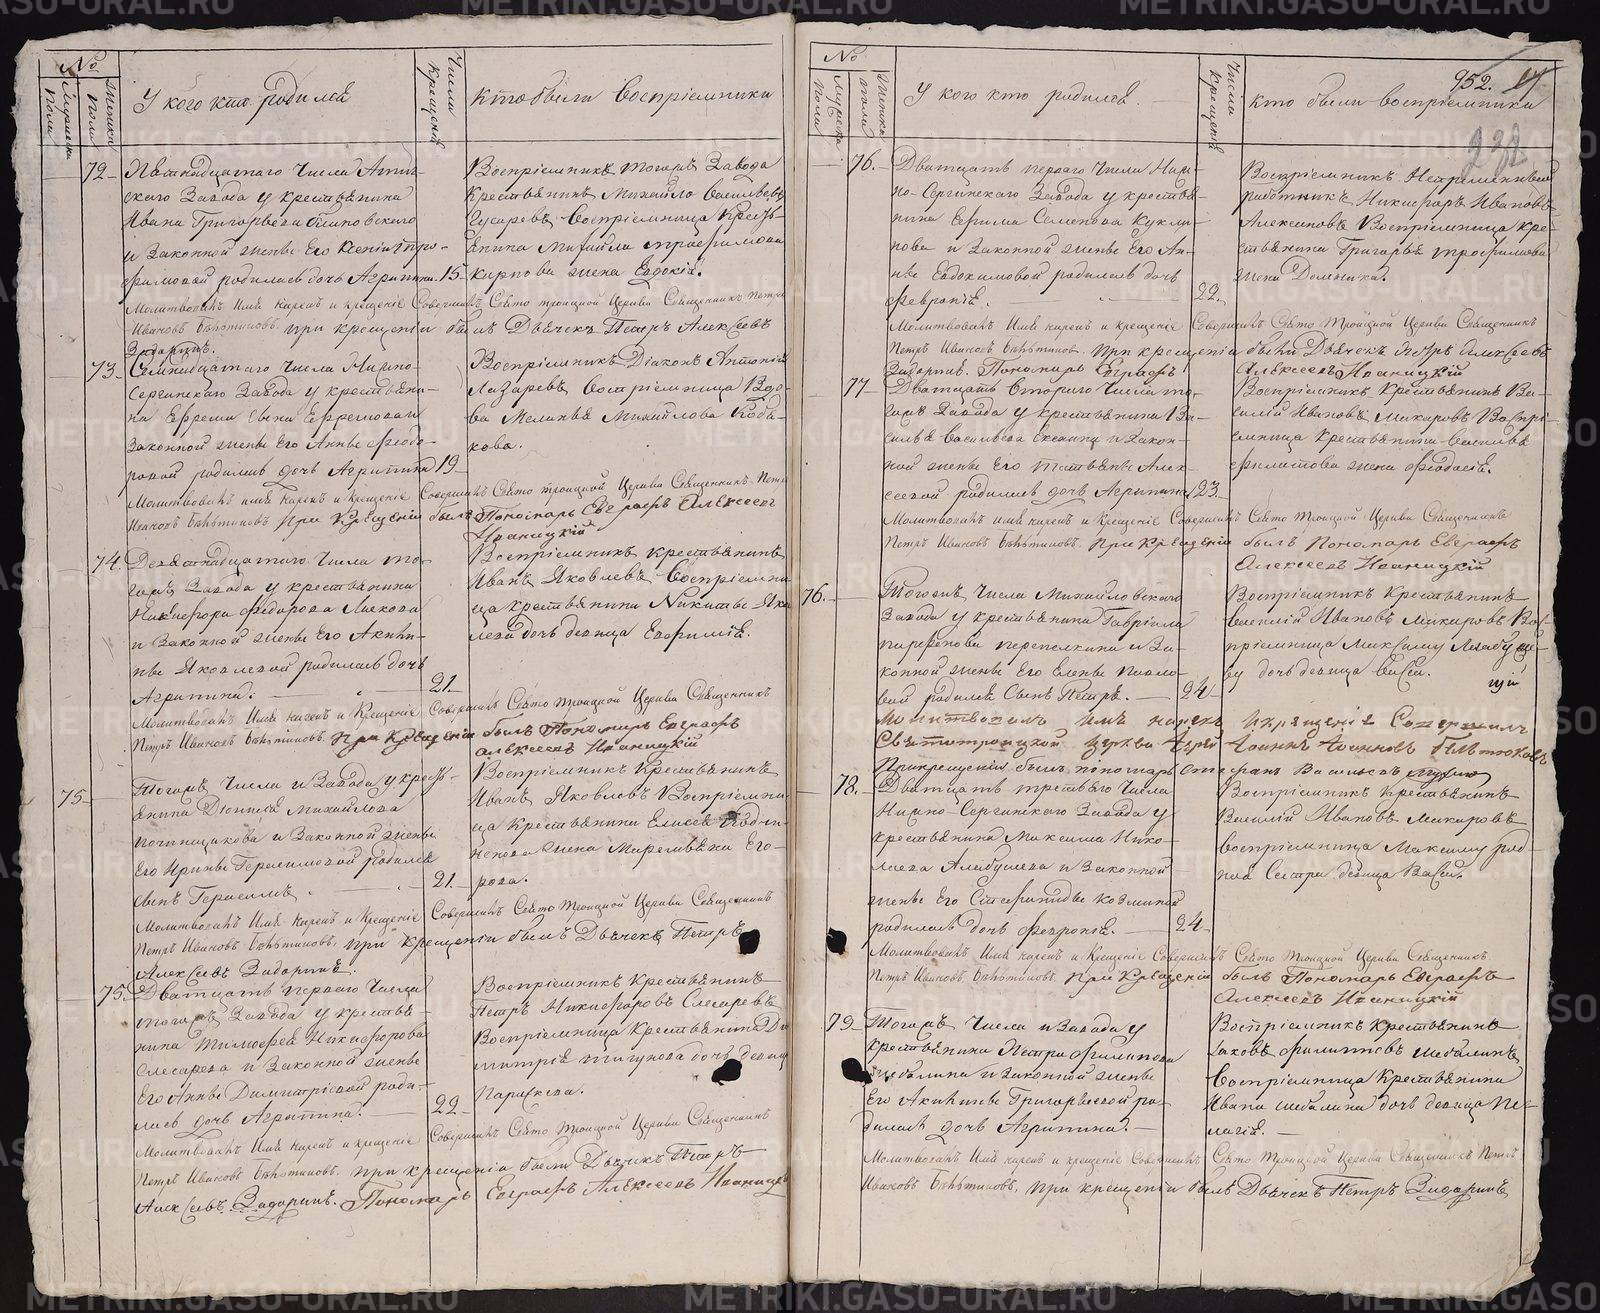 №
Мужеска пола
Женска пола
У кого кто родился
Числа крещенія
Кто были Воспріемники
72
Пятнадцатаго Числа Атиг-
скаго Завода у крестьянина
Ивана Григорьева
и Законной жены Его Ксеніи Тро-
фимовой родилась дочь Агрипина. 15
Воспріемникъ тогоже Завода
Крестьянинъ Михайло Васильевъ
Сусаревъ, Воспріемница Кресть-
янина Михайла Трофимова
Карпова жена Евдокія.
Молитвовалъ Имя нарекъ и крещеніе Совершилъ Свято троицкой Церкви Священникъ Петръ
Ивановъ При крещеніи былъ Дьячекъ Петръ Алексеевъ
Задоринъ.
73
Семнадцатаго Числа Нижно-
Сергинскаго Завода у крестьяни-
на Ефрема сына Ефремова и
Законной жены Его Анны Федо-
ровой родилась дочь Агрипина 19
Воспріемникъ Діаконъ Антоній
Лазаревъ, воспріемница Вдо-
ва Меланья Михайлова Кобя-
кова.
Молитвовалъ имя нарекъ и крещеніе Совершилъ Свято троицкой Церкви Священникъ Петръ
Ивановъ При Крещеніи былъ Пономарь Евграфъ Алексеевъ
Иваницкій
74.
Девятнадцатаго Числа то-
гоже Завода у крестьянина
Никифора Федорова
и Законной жены Его Акили-
ны Яковлевой родилась дочь
Агрипина. 21.
Воспріемникъ крестьянинъ
Иванъ Яковлевъ, Воспріемни-
ца крестьянина Никиты Яко
лева дочь девица Евфимія.
Молитвовалъ Имя нарекъ и Крещеніе Совершилъ Свято Троицкой Церкви Священникъ
Петръ Ивановъ При Крещеніи былъ Пономарь Евграфъ
Алексеевъ Иваницкій
75
Тогоже Числа и Завода у кресть-
янина Діонисія Михайлова
и Законной жены
Его Ирины Герасимовой родился
сынъ Герасимъ. 21.
Воспріемникъ Крестьянинъ
Иванъ Яковлевъ Воспріемни
ца Крестьянина Елисея
жена Маремьяна Его-
рова.
Молитвовалъ Имя нарекъ и Крещеніе Совершилъ Свято Троицкой Церкви Священникъ
Петръ Ивановъ. при крещеніи былъ Дьячекъ Петръ
Алексеевъ Задоринъ.
75.
Дватцать перваго Числа
тогоже Завода у крестья-
нина Тимофея Никифорова
Слесарева и Законной жены
Его Анны Димитріевой роди-
лась дочь Агрипина. 22
Воспріемникъ Крестьянинъ
Петръ Никифоровъ Слесаревъ
Воспріемница Крестьянина Ди
митрія дочь девица
Параскева.
Молитвовалъ Имя нарекъ и крещеніе Совершилъ Свято Троицкой Церкви Священникъ
Петръ Ивановъ при крещеніи были Дьячекъ Петръ
Алексеевъ Задоринъ. Пономарь Евграфъ Алексеевъ Иваницкій
№
Мужеска пола
Женска пола
У кого кто родился.
Числа крещенія
952.
Кто были воспріемники
232
76.
Дватцать перваго Числа Ниж-
но-Сергинскаго Завода у крестья-
нина Ефима Семенова Кукли-
нова и Законной жены Его Ан-
ны Евдокимовой родилась дочь
Февронія. 22.
Воспріемникъ Непременный
работникъ Никифоръ Ивановъ
Алексеновъ Воспріемница кре-
стьянина Григорья Трофимова
жена Домника.
Молитвовалъ Имя нарекъ и крещеніе Совершилъ Свято Троицкой Церкви Священникъ
Петръ Ивановъ При крещеніи были Дьячекъ Петръ Алексеевъ
Задоринъ. Пономарь Евграфъ Алексеевъ Иваницкій
77
Дватцать втораго Числа то-
гоже Завода у крестьянина Ва-
силья Васильева и Закон-
ной жены Его Татьяны Алек-
сеевой родилась дочь Агрипина 23.
Воспріемникъ Крестьянинъ Ва-
силій Ивановъ Макаровъ Воспрі-
емница крестьянина Василья
Филатова жена Феодосія.
Молитвовалъ Имя нарекъ и Крещеніе Совершилъ Свято Троицкой Церкви Священникъ
Петръ Ивановъ При Крещеніи былъ Пономарь Евграфъ
Алексеевъ Иваницкій
76.
Тогоже Числа Михайловскаго
Завода у крестьянина Гавріила
Парфенова Перепелкина и За-
конной жены Его Елены Павло-
вой родился Сынъ Петръ. 24
Воспріемникъ Крестьянинъ
Василій Ивановъ Макаровъ Вос-
пріемница
дочь девица Васса.
Молитвовалъ имя нарекъ и крещеніе Совершилъ
Святотроицкой церкви Іерей Іоаннъ Іоанновъ
При крещеніи былъ пономарь Стефанъ Васильевъ
78.
Дватцать третьяго Числа
Нижно-Сергинскаго Завода у
крестьянина Максима Нико-
лаева и Законной
жены Его Степаниды Козминой
родилась дочь Февронія. 24
Воспріемникъ Крестьянинъ
Василій Ивановъ Макаровъ
воспріемница Максиму род-
ная Сестра девица Васса.
Молитвовалъ Имя нарекъ и Крещеніе Совершилъ Свято Троицкой Церкви Священникъ
Петръ Ивановъ При Крещеніи былъ Пономарь Евграфъ
Алексеевъ Иваницкій
79
Тогоже Числа и Завода у
крестьянина Петра Филипова
Шебалина и Законной жены
Его Акилины Григорьевой ро-
дилась дочь Агрипина.
Воспріемникъ Крестьянинъ
Іаковъ Филиповъ Шебалинъ
Воспріемница Крестьянина
Ивана Шебалина дочь девица Пе-
лагія.
Молитвовалъ Имя нарекъ и крещеніе Совершилъ Свято Троицкой Церкви Священникъ Петръ
Ивановъ При крещеніи былъ Дьячекъ Петръ Задоринъ
METRIKI.GASO-URAL.RU